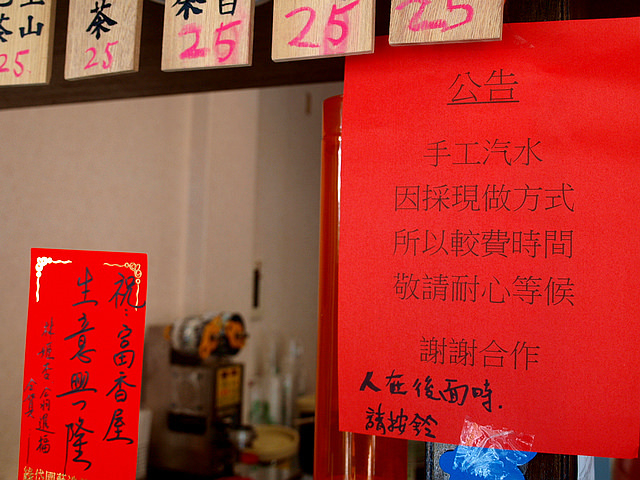 山
茶
25.
茶
25
茶
25
25
25
公告
手工汽水
因採現做方式
所以較費時間
敬請耐心等候
謝謝合作
人在後面時.
請按鈴
祝:富香屋
生意興隆